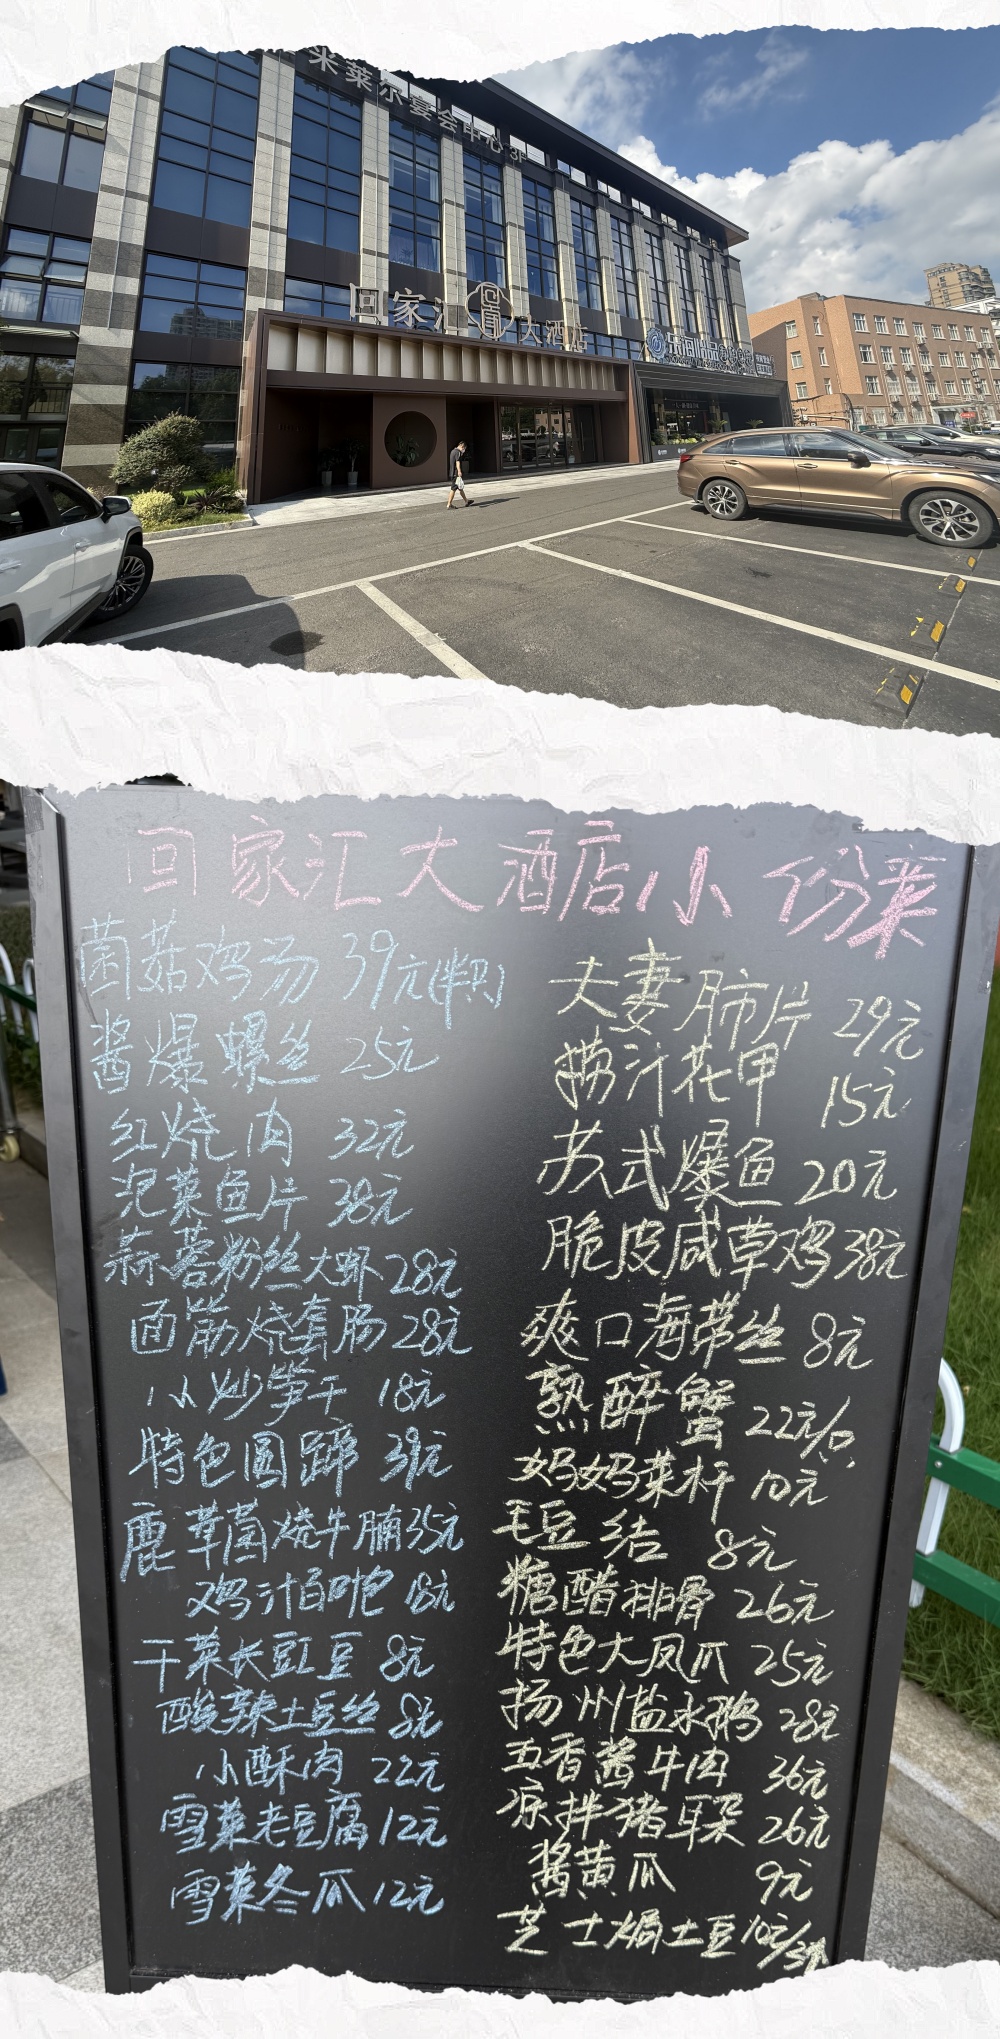 米莱尔宴会中心 3F
回家汇
大酒店
回家汇大酒店小份菜
菌菇鸡汤 39元(半只)
酱爆螺丝 25元
红烧肉 32元
泡菜鱼片 38元
蒜蓉粉丝大虾 28元
面筋烧套肠 28元
小炒笋干 18元
特色圆蹄 39元
鹿茸菌烧牛腩 35元
鸡汁白叶包 18元
干菜长豇豆 8元
酸辣土豆丝 8元
小酥肉 22元
雪菜老豆腐 12元
雪菜冬瓜 12元
夫妻肺片 29元
捞汁花甲 15元
苏式爆鱼 20元
脆皮咸草鸡 38元
爽口海带丝 8元
熟醉蟹 22元/只
妈妈菜杆 10元
毛豆结 8元
糖醋排骨 26元
特色大凤爪 25元
扬州盐水鹅 28元
五香酱牛肉 36元
凉拌猪耳朵 26元
酱黄瓜 9元
芝士焗土豆 10元/3个